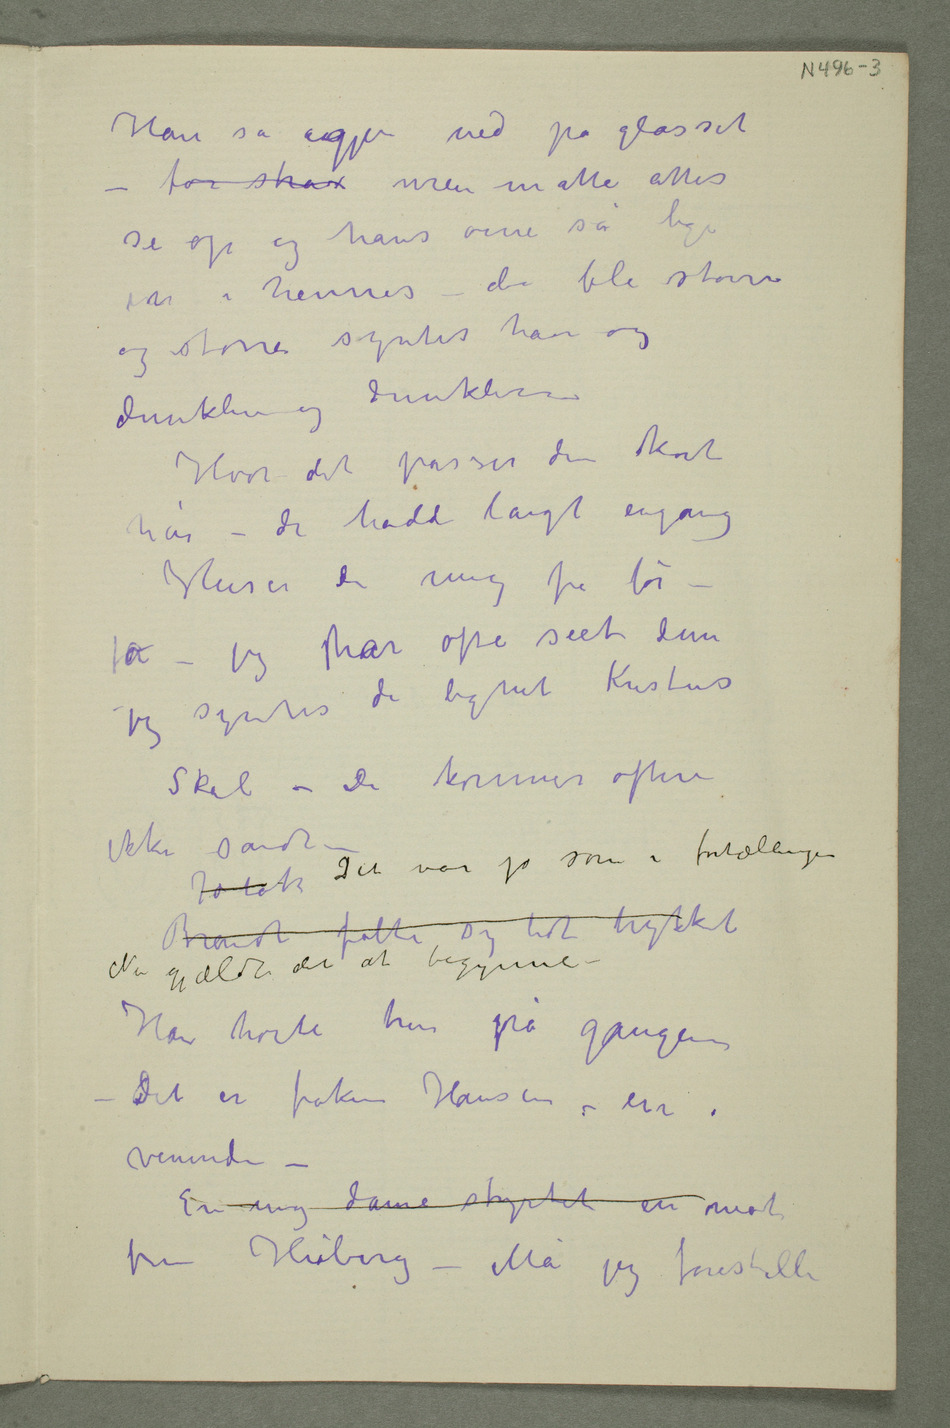 N496-3
Han sa igjen ned på glasset
– for strax men matte attes
se op og hans øine så lige
in i hennes – de ble større
og større syntes han og
dunklere og dunklere
Hvor det passer dem kort
hår – de hadde langt engang
Huser De mig fra før –
ja – jeg har ofte seet dem
jeg syntes de lignet Kristus
Skål – De kommer oftere
ikke sandt –
Jo tak Det var jo som i fortællingen
Brandt følte sig lidt trykket
Nu gjældte det at begynne –
Han hørte trin på gangen
– Det er frøken Hansen – en
veninde –
En ung dame styrtet in mot
fru Heiberg – Må jeg forestille